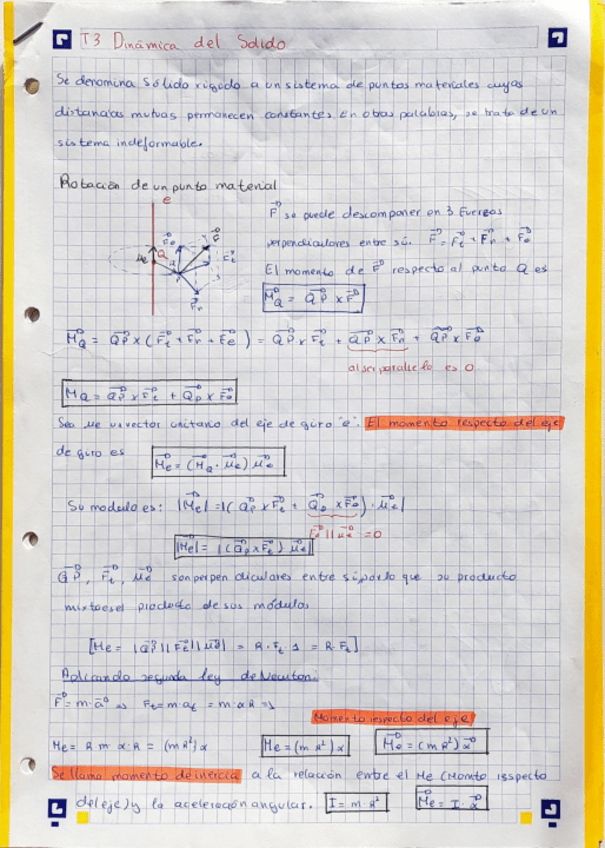 T3 Dinámica del Solido
Se denomina Sólido rígido a un sistema de puntos materiales cuyas
distancias mutuas permanecen constantes. En otras palabras, se trata de un
sistema indeformable.
Rotación de un punto material
e
F⃗ se puede descomponer en 3 Fuerzas
perpendiculares entre sí. F⃗ = F⃗t + F⃗n + F⃗e
El momento de F⃗ respecto al punto Q es
M⃗Q = QP⃗ x F⃗
M⃗Q = QP⃗ x (F⃗t + F⃗n + F⃗e) = QP⃗ x F⃗t + QP⃗ x F⃗n + QP⃗ x F⃗e
al ser paralelo es 0
M⃗Q = QP⃗ x F⃗t + QP⃗ x F⃗e
Sea μe un vector unitario del eje de giro "e". El momento respecto del eje
de giro es M⃗e = (M⃗Q · μ⃗e) μ⃗e
Su modulo es: |M⃗e| = |(QP⃗ x F⃗t + QP⃗ x F⃗e) · μ⃗e|
F⃗e || μ⃗e = 0
|M⃗e| = |(QP⃗ x F⃗t) μ⃗e|
QP⃗, F⃗t, μ⃗e son perpendiculares entre sí por lo que su producto
mixto es el producto de sus módulos
[Me = |QP⃗||F⃗t||μ⃗e| = R · Ft 1 = R · Ft]
Aplicando segunda ley de Newton:
F⃗ = m · a⃗ => Ft = m · at = m · α R =>
Momento respecto del eje
Me = R m · α · R = (m R²) α Me = (m R²) α M⃗e = (m R²) α⃗
Se llama momento de inercia a la relación entre el Me (Momto respecto
del eje) y la aceleración angular. I = m · R² M⃗e = I · α⃗